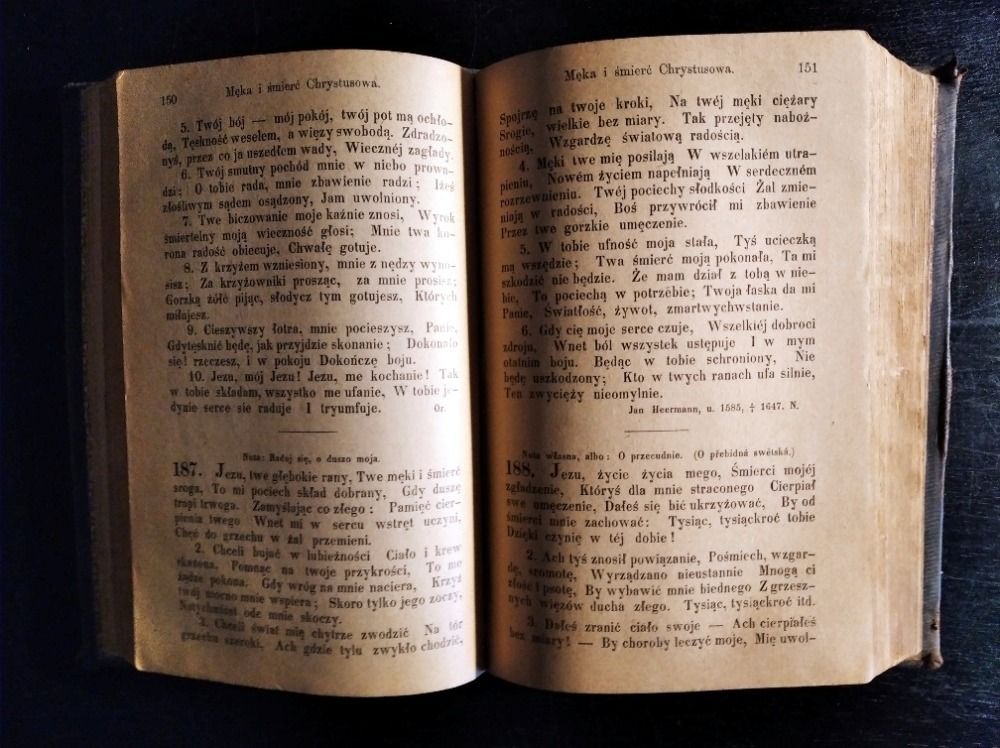 150 Męka i śmierć Chrystusowa.
5. Twój bój — mój pokój, twój pot mą ochło-
dą, Tęskność weselem, a więzy swobodą. Zdradzo-
nyś, przez co ja uszedłem wady, Wiecznéj zagłady.
6. Twój smutny pochód mnie w niebo prowa-
dzi; O tobie rada, mnie zbawienie radzi; Iżeś
złośliwym sądem osądzony, Jam uwolniony.
7. Twe biczowanie moje kaźnie znosi, Wyrok
śmiertelny moją wieczność głosi; Mnie twa ko-
rona radość obiecuje, Chwałę gotuje.
8. Z krzyżem wzniesiony, mnie z nędzy wyno-
sisz; Za krzyżowniki prosząc, za mnie prosisz;
Gorzką żółć pijąc, słodycz tym gotujesz, Których
miłujesz.
9. Cieszywszy łotra, mnie pocieszysz, Panie,
Gdy tęsknić będę, jak przyjdzie skonanie; Dokonało
się! rzeczesz, i w pokoju Dokończę boju.
10. Jezu, mój Jezu! Jezu, me kochanie! Tak
w tobie składam, wszystko me ufanie, W tobie je-
dynie serce się raduje I tryumfuje. Or.
Nuta: Raduj się, o duszo moja.
187. Jezu, twe głębokie rany, Twe męki i śmierć
sroga, To mi pociech skład dobrany, Gdy duszę
trapi trwoga. Zamyślając co złego: Pamięć cier-
pienia twego Wnet mi w sercu wstręt uczyni,
Chęć do grzechu w żal przemieni.
2. Chceli bujać w lubieżności Ciało i krew
skażona, Pomnąc na twoje przykrości, To me
żądze pokona. Gdy wróg na mnie naciera, Krzyż
twój mocno mnie wspiera; Skoro tylko jego zoczy,
Natychmiast ode mnie skoczy.
3. Chceli świat mię chytrze zwodzić Na tór
grzechu szeroki, Ach gdzie tylu zwykło chodzić,
Męka i śmierć Chrystusowa. 151
Spojrzę na twoje kroki, Na twéj męki ciężary
Srogie, wielkie bez miary. Tak przejęty naboż-
nością, Wzgardzę światową radością.
4. Męki twe mię posilają W wszelakiém utra-
pieniu, Nowém życiem napełniają W serdeczném
rozrzewnieniu. Twéj pociechy słodkości Żal zmie-
niają w radości, Boś przywrócił mi zbawienie
Przez twe gorzkie umęczenie.
5. W tobie ufność moja stała, Tyś ucieczką
mą wszędzie; Twa śmierć moją pokonała, Ta mi
szkodzić nie będzie. Że mam dział z tobą w nie-
bie, To pociechą w potrzebie; Twoja łaska da mi
Panie, Światłość, żywot, zmartwychwstanie.
6. Gdy cię moje serce czuje, Wszelkiéj dobroci
zdroju, Wnet ból wszystek ustępuje I w mym
otatnim boju. Będąc w tobie schroniony, Nie
będę uszkodzony; Kto w twych ranach ufa silnie,
Ten zwycięży nieomylnie.
Jan Heermann, u. 1585, † 1647. N.
Nuta własna, albo: O przecudnie. (O přebidná swětská.)
188. Jezu, życie życia mego, Śmierci mojéj
zgładzenie, Któryś dla mnie straconego Cierpiał
swe umęczenie, Dałeś się bić ukrzyżować, By od
śmierci mnie zachować: Tysiąc, tysiąckroć tobie
Dzięki czynię w téj dobie!
2. Ach tyś znosił powiązanie, Pośmiech, wzgar-
dę, sromotę, Wyrządzano nieustannie Mnogą ci
złość i psotę, By wybawić mnie biednego Z grzesz-
nych więzów ducha złego. Tysiąc, tysiąckroć itd.
3. Dałeś zranić ciało swoje — Ach cierpiałeś
bez miary! — By choroby leczyć moje, Mię uwol-